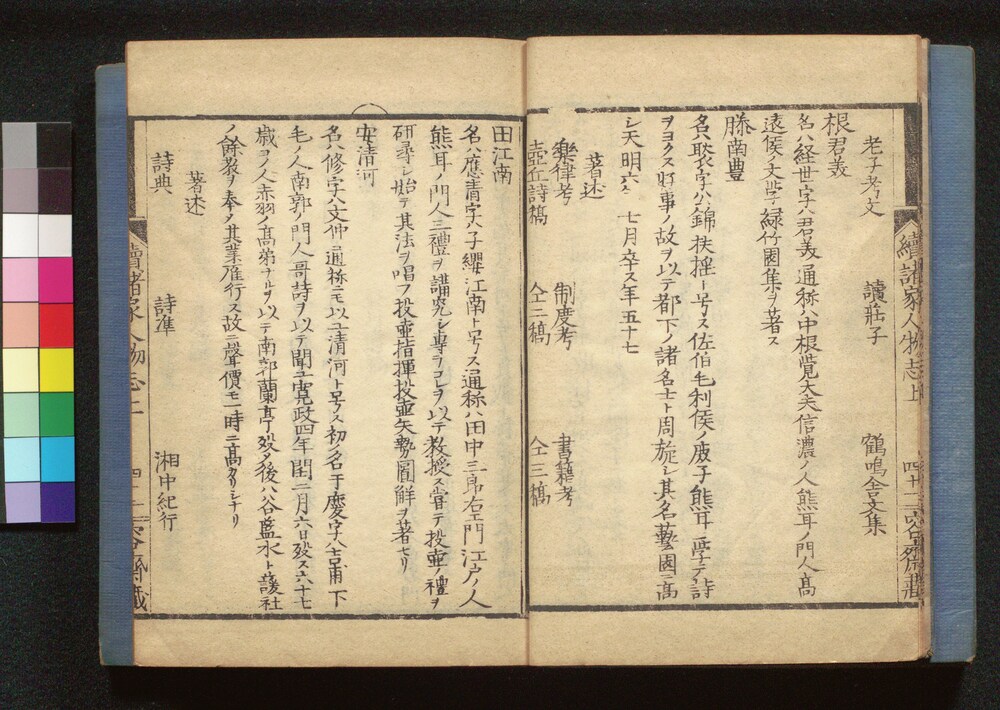 老子考文　讀莊子　鶴鳴舎文集
根君美
名ハ経世字ハ君美通称ハ中根覚大夫信濃ノ人熊耳ノ門人髙
遠侯ノ文学緑竹園集ヲ著ス
滕南豊
名ハ褧字ハ公錦扶揺ト号ス佐伯毛利侯ノ庻子熊耳ニ学テ詩
ヲヨクス好事ノ故ヲ以テ都下ノ諸名士ト周旋シ其名藝園ニ高
シ天明六年七月卒ス年五十七
著述
樂律考　制度考　書籍考
壺丘詩稿　仝二稿　仝三稿
續諸家人物志上
田江南
名ハ應清字ハ子纓江南ト号ス通称ハ田中三郎右エ門江戸ノ人
熊耳ノ門人三禮ヲ講究シ専ラコレヲ以テ教授ス甞テ投壺ノ禮ヲ
研尋シ始テ其法ヲ唱フ投壺指揮投壺矢勢圖解ヲ著セリ
安清河
名ハ修字ハ文仲通称モ以上清河ト号ス初ノ名于慶字ハ吉甫下
毛ノ人南郭ノ門人哥詩ヲ以テ聞ユ寛政四年閏二月六日殁ス六十七
歳コノ人赤羽ノ高弟ナルヲ以テ南郭蘭亭殁ノ後ハ谷藍水ト護社
ノ餘教ヲ奉ス其業雁行ス故ニ聲價モ一時ニ高カリシナリ
著述
詩典　詩準　湘中紀行
續諸家人物志上